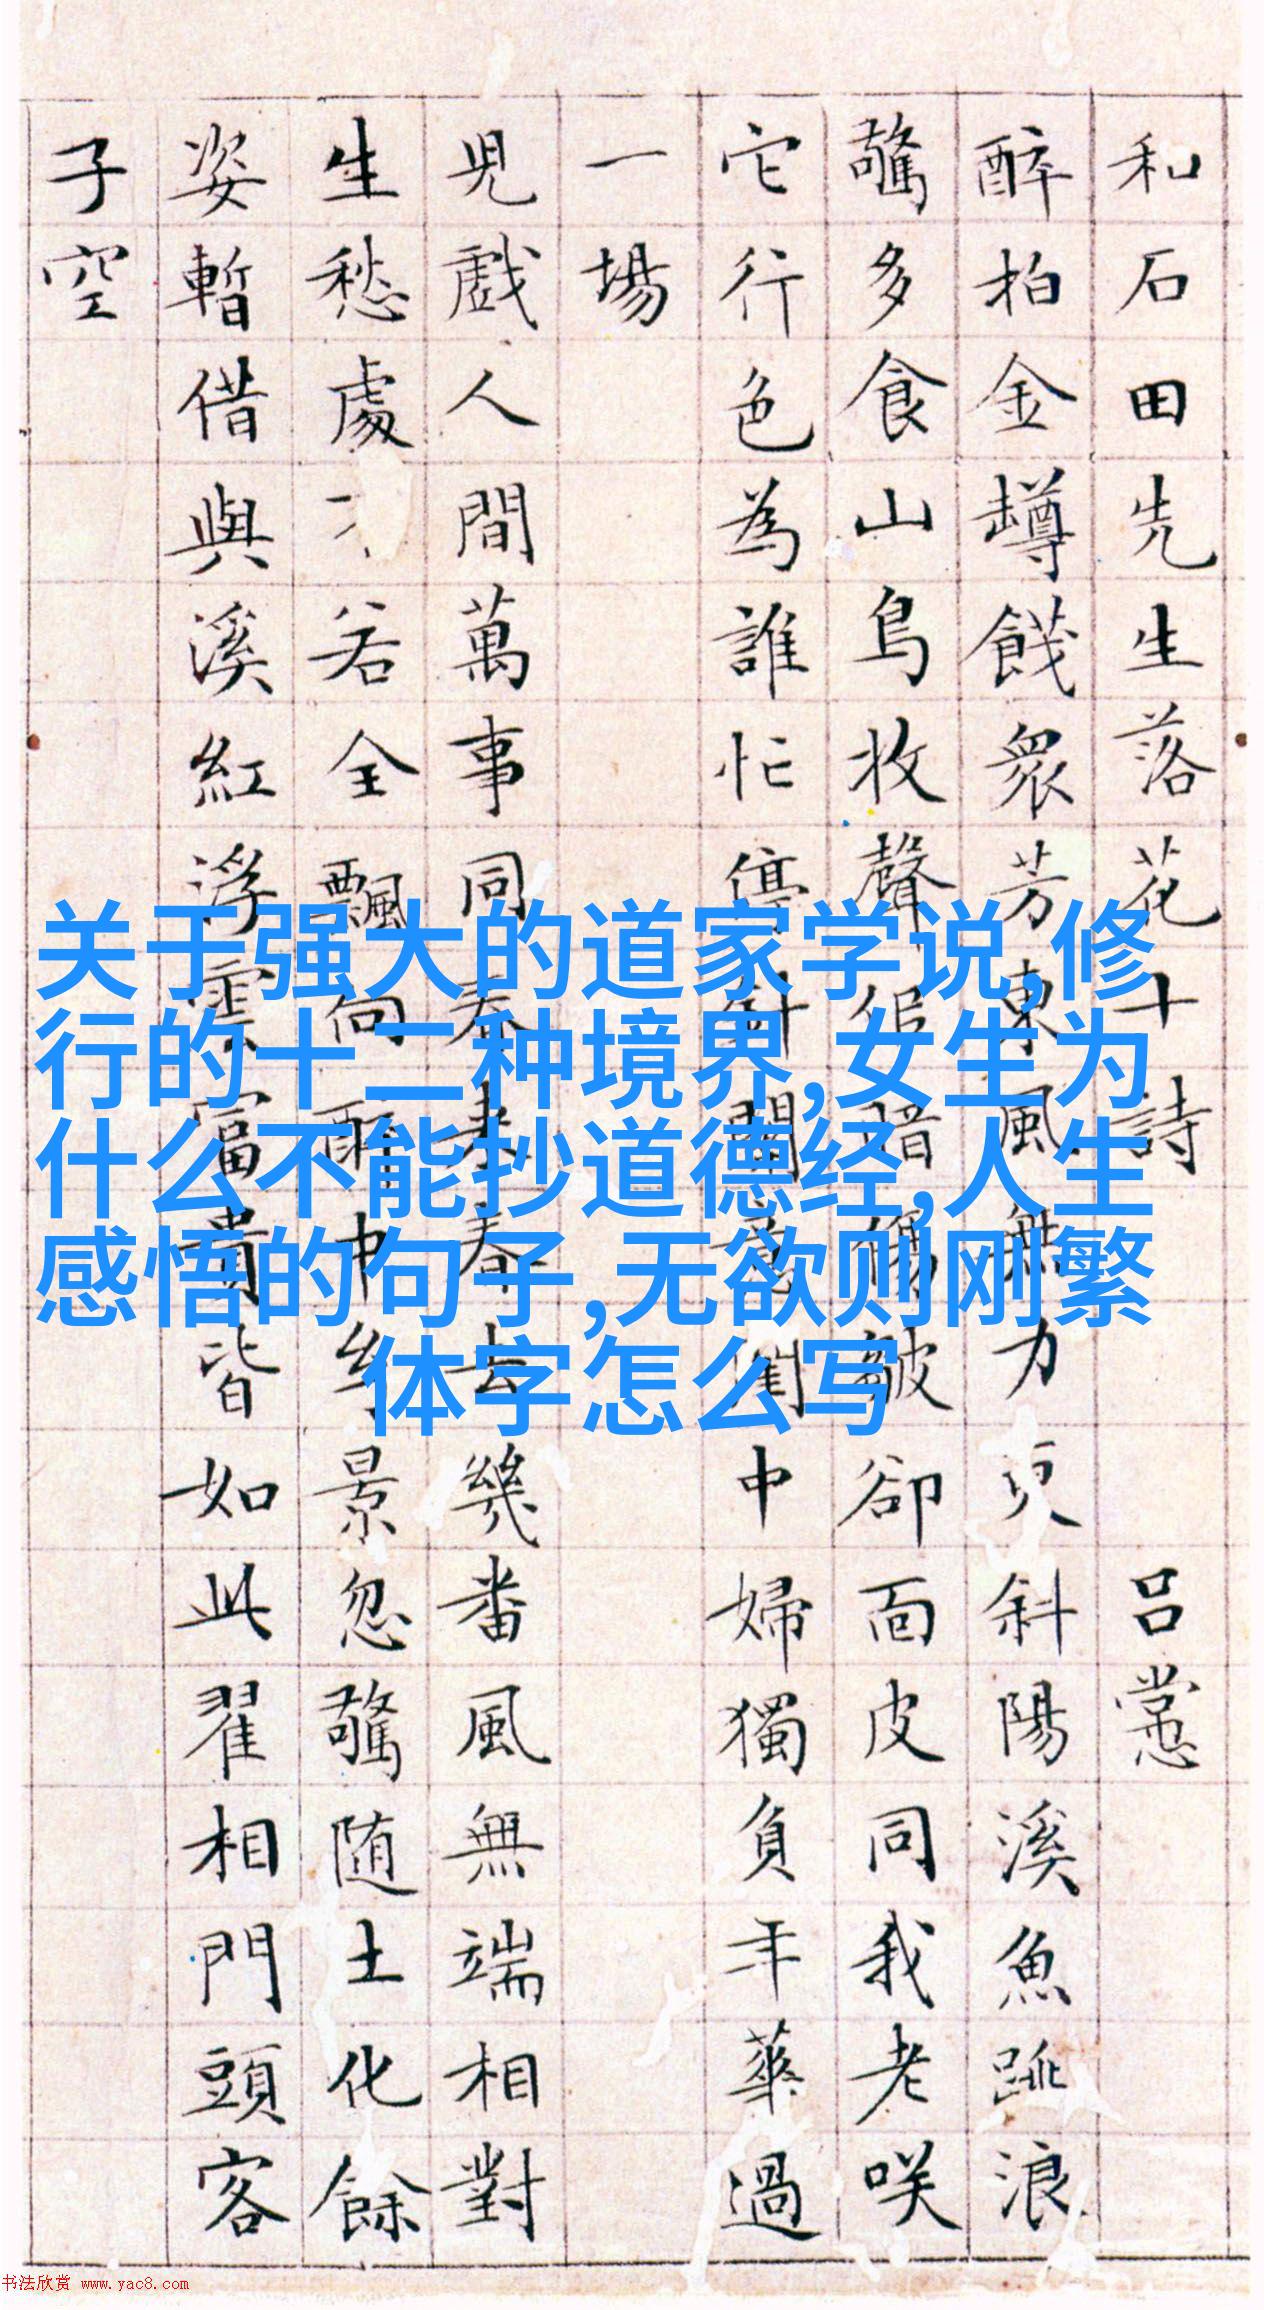 和石田先生落花十詩 呂㦂
醉拍金罇餞衆芳東風無力更斜陽溪魚跳浪
驚多食山鳥收聲惜皺卻面皮同我老咲
它行色為誰忙停針闌閨中婦獨負年華過
一場
児戲人間萬事同春来春去幾番風無端相對
生愁處不若全飄向雨中幻景忽驚随土化餘
姿暫借與溪紅浮雲富貴皆如此翟相門頭客
子空
关于强大的道家学说,修
行的十二种境界,女生为
什么不能抄道德经,人生
感悟的句子,无欲则刚繁
体字怎么写
书法欣赏 www.yac8.com